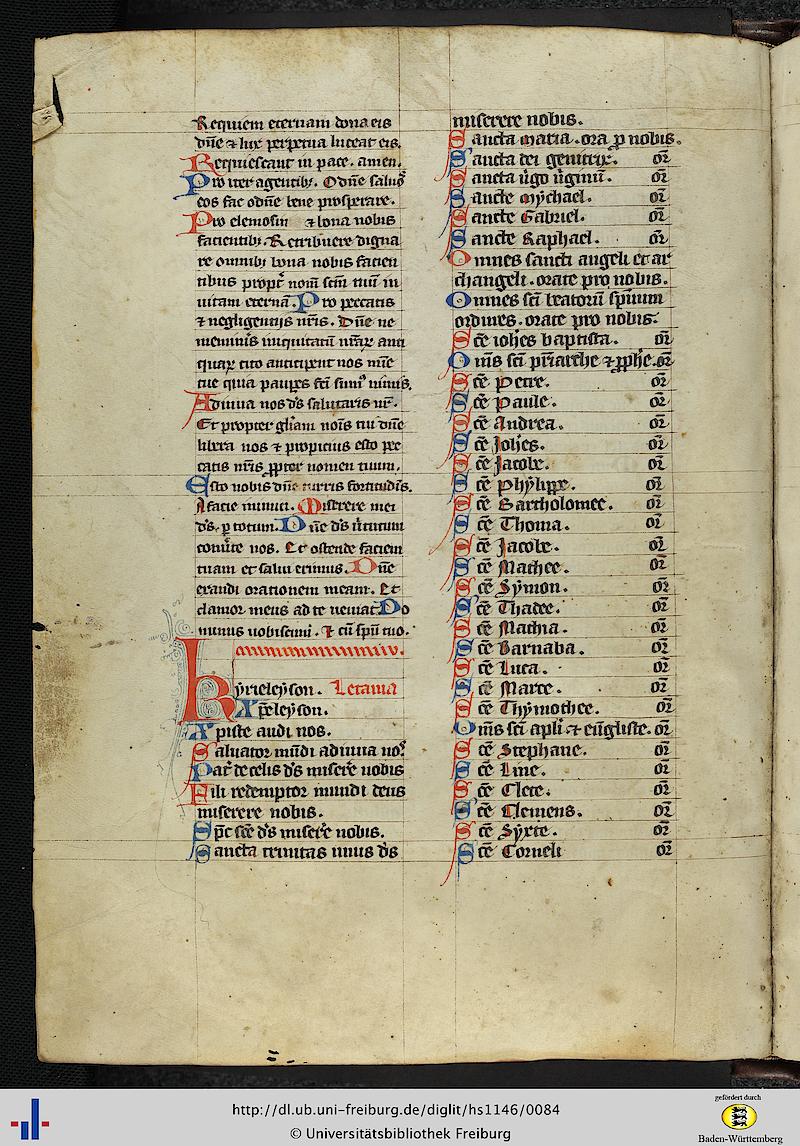 Requiem eternam dona eis
dn̄e ⁊ lux perpetua luceat eis.
Requiescant in pace. amen.
Pro iter agentibꝫ. O dn̄e saluoꝰ
eos fac odn̄e bene prosperare.
Pro elemosin ⁊ bona nobis
facientibꝫ. Retribuere digna
re omnibꝫ bona nobis facien
tibus propt̄ nom̄ scm̄ tuū in
uitam eternā. Pro peccatis
⁊ negligentijs nr̄is. Dn̄e ne
memin̄is iniquitatū nr̄aꝝ anti
quaꝝ cito anticipent nos mīe
tue quia pauꝑes fc̄i sumꝰ nimis.
Adiuua nos ds̄ salutaris nr̄.
Et propter gl̄iam nōis tui dn̄e
libera nos ⁊ propicius esto pec
catis nr̄is ꝓpter nomen tuum.
Esto nobis dn̄e turris fortitudīs.
A facie inimici. Miserere mei
ds̄. ꝑ totum. Dn̄e ds̄ ūtutum
conūte nos. Et ostende faciem
tuam et salui erimus. Dn̄e
exaudi orationem meam. Et
clamor meus ad te ueniat Do
minus uobiscum. ⁊ cū spū tuo.
Kyrieleyson. Letania
Xp̄eleyson.
Xpiste audi nos.
Saluator mūdi adiuua noꝰ
Pat̄ de celis ds̄ miser̄e nobis
Fili redemptor mundi deus
miserere nobis.
Sp̄c sc̄e ds̄ miser̄e nobis.
Sancta trinitas unus ds̄
miserere nobis.
Sancta maria. ora ꝓ nobis.
Sancta dei genitrix. or̄
Sancta ūgo ūginū. or̄
Sancte Mychael. or̄
Sancte Gabriel. or̄
Sancte Raphael. or̄
Omnes sancti angeli et ar
changeli. orate pro nobis.
Omnes sc̄i beatorū spirituum
ordines. orate pro nobis.
Sc̄e ioh̄es baptista. or̄
Om̄s sc̄i pr̄iarche ⁊ ꝓphē. or̄
Sc̄e Petre. or̄
Sc̄e Paule. or̄
Sc̄e Andrea. or̄
Sc̄e Joh̄es. or̄
Sc̄e Jacobe. or̄
Sc̄e Phylippe. or̄
Sc̄e Bartholomee. or̄
Sc̄e Thoma. or̄
Sc̄e Jacobe. or̄
Sc̄e Mathee. or̄
Sc̄e Symon. or̄
Sc̄e Thadee. or̄
Sc̄e Mathia. or̄
Sc̄e Barnaba. or̄
Sc̄e Luca. or̄
Sc̄e Marce. or̄
Sc̄e Thymothee. or̄
Om̄s sc̄i apl̄i ⁊ eūgliste. or̄
Sc̄e Stephane. or̄
Sc̄e Line. or̄
Sc̄e Clete. or̄
Sc̄e Clemens. or̄
Sc̄e Syxte. or̄
Sc̄e Corneli or̄
http://dl.ub.uni-freiburg.de/diglit/hs1146/0084
© Universitätsbibliothek Freiburg
gefördert durch
Baden-Württemberg